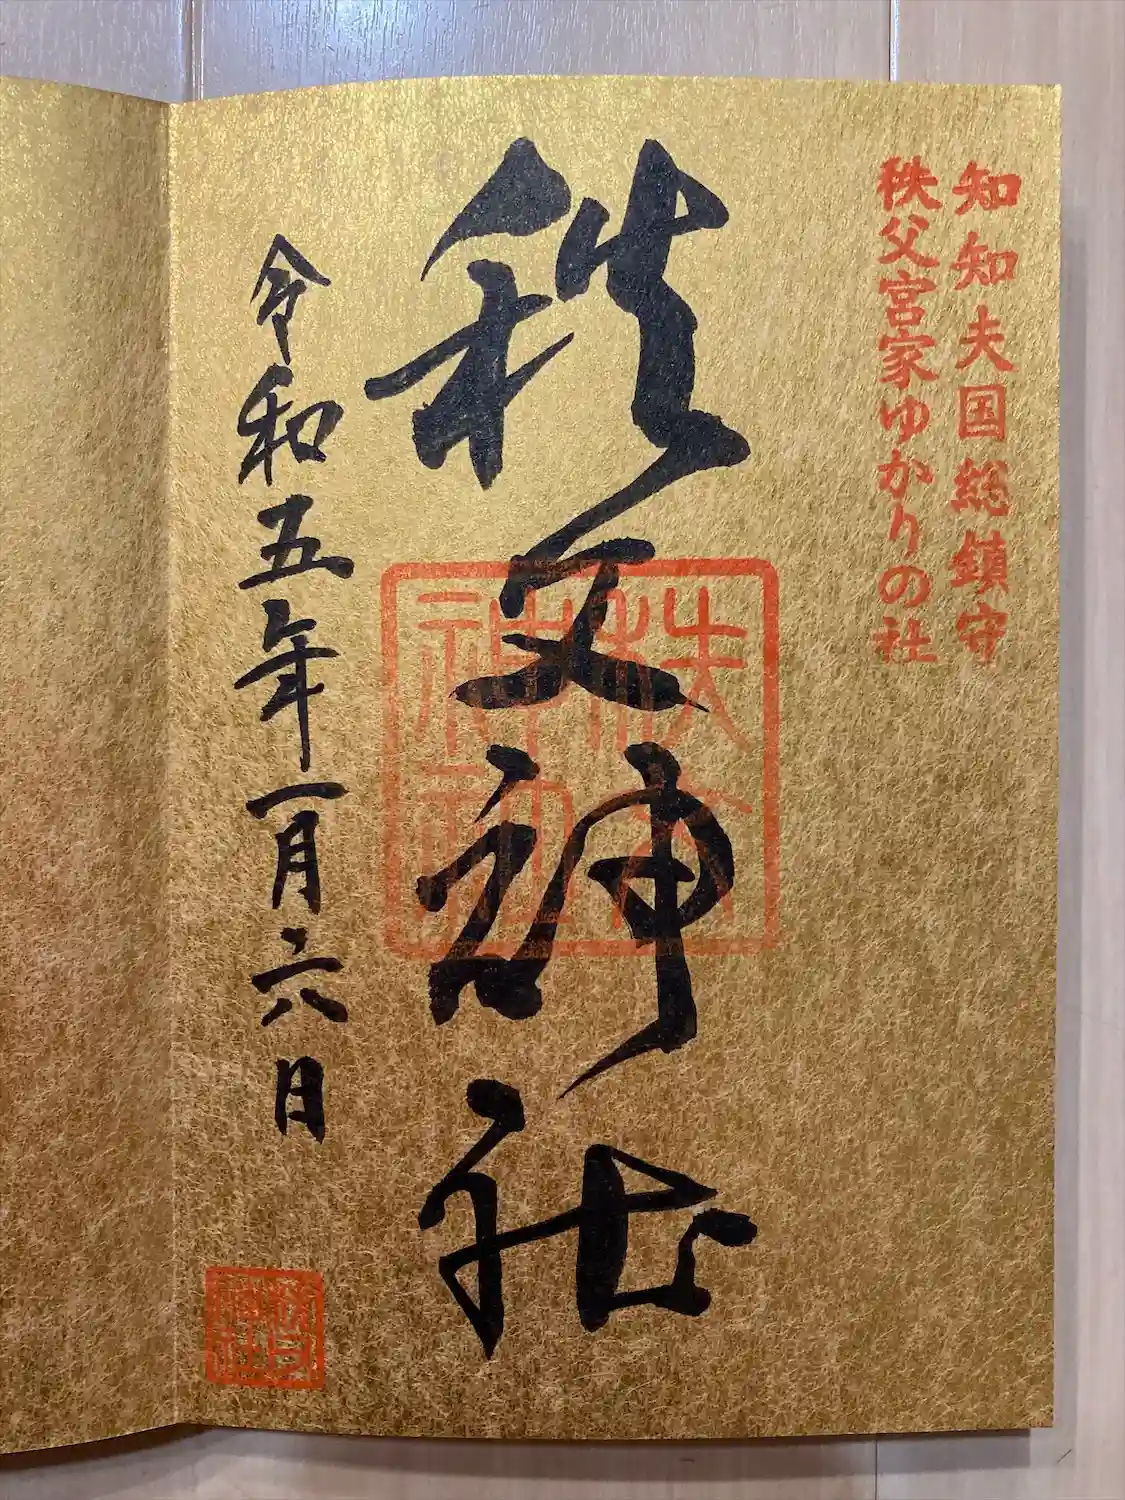 知知夫国総鎮守
秩父宮家ゆかりの社
秩父神社
秩父神社
令和五年一月六日
秩父神社